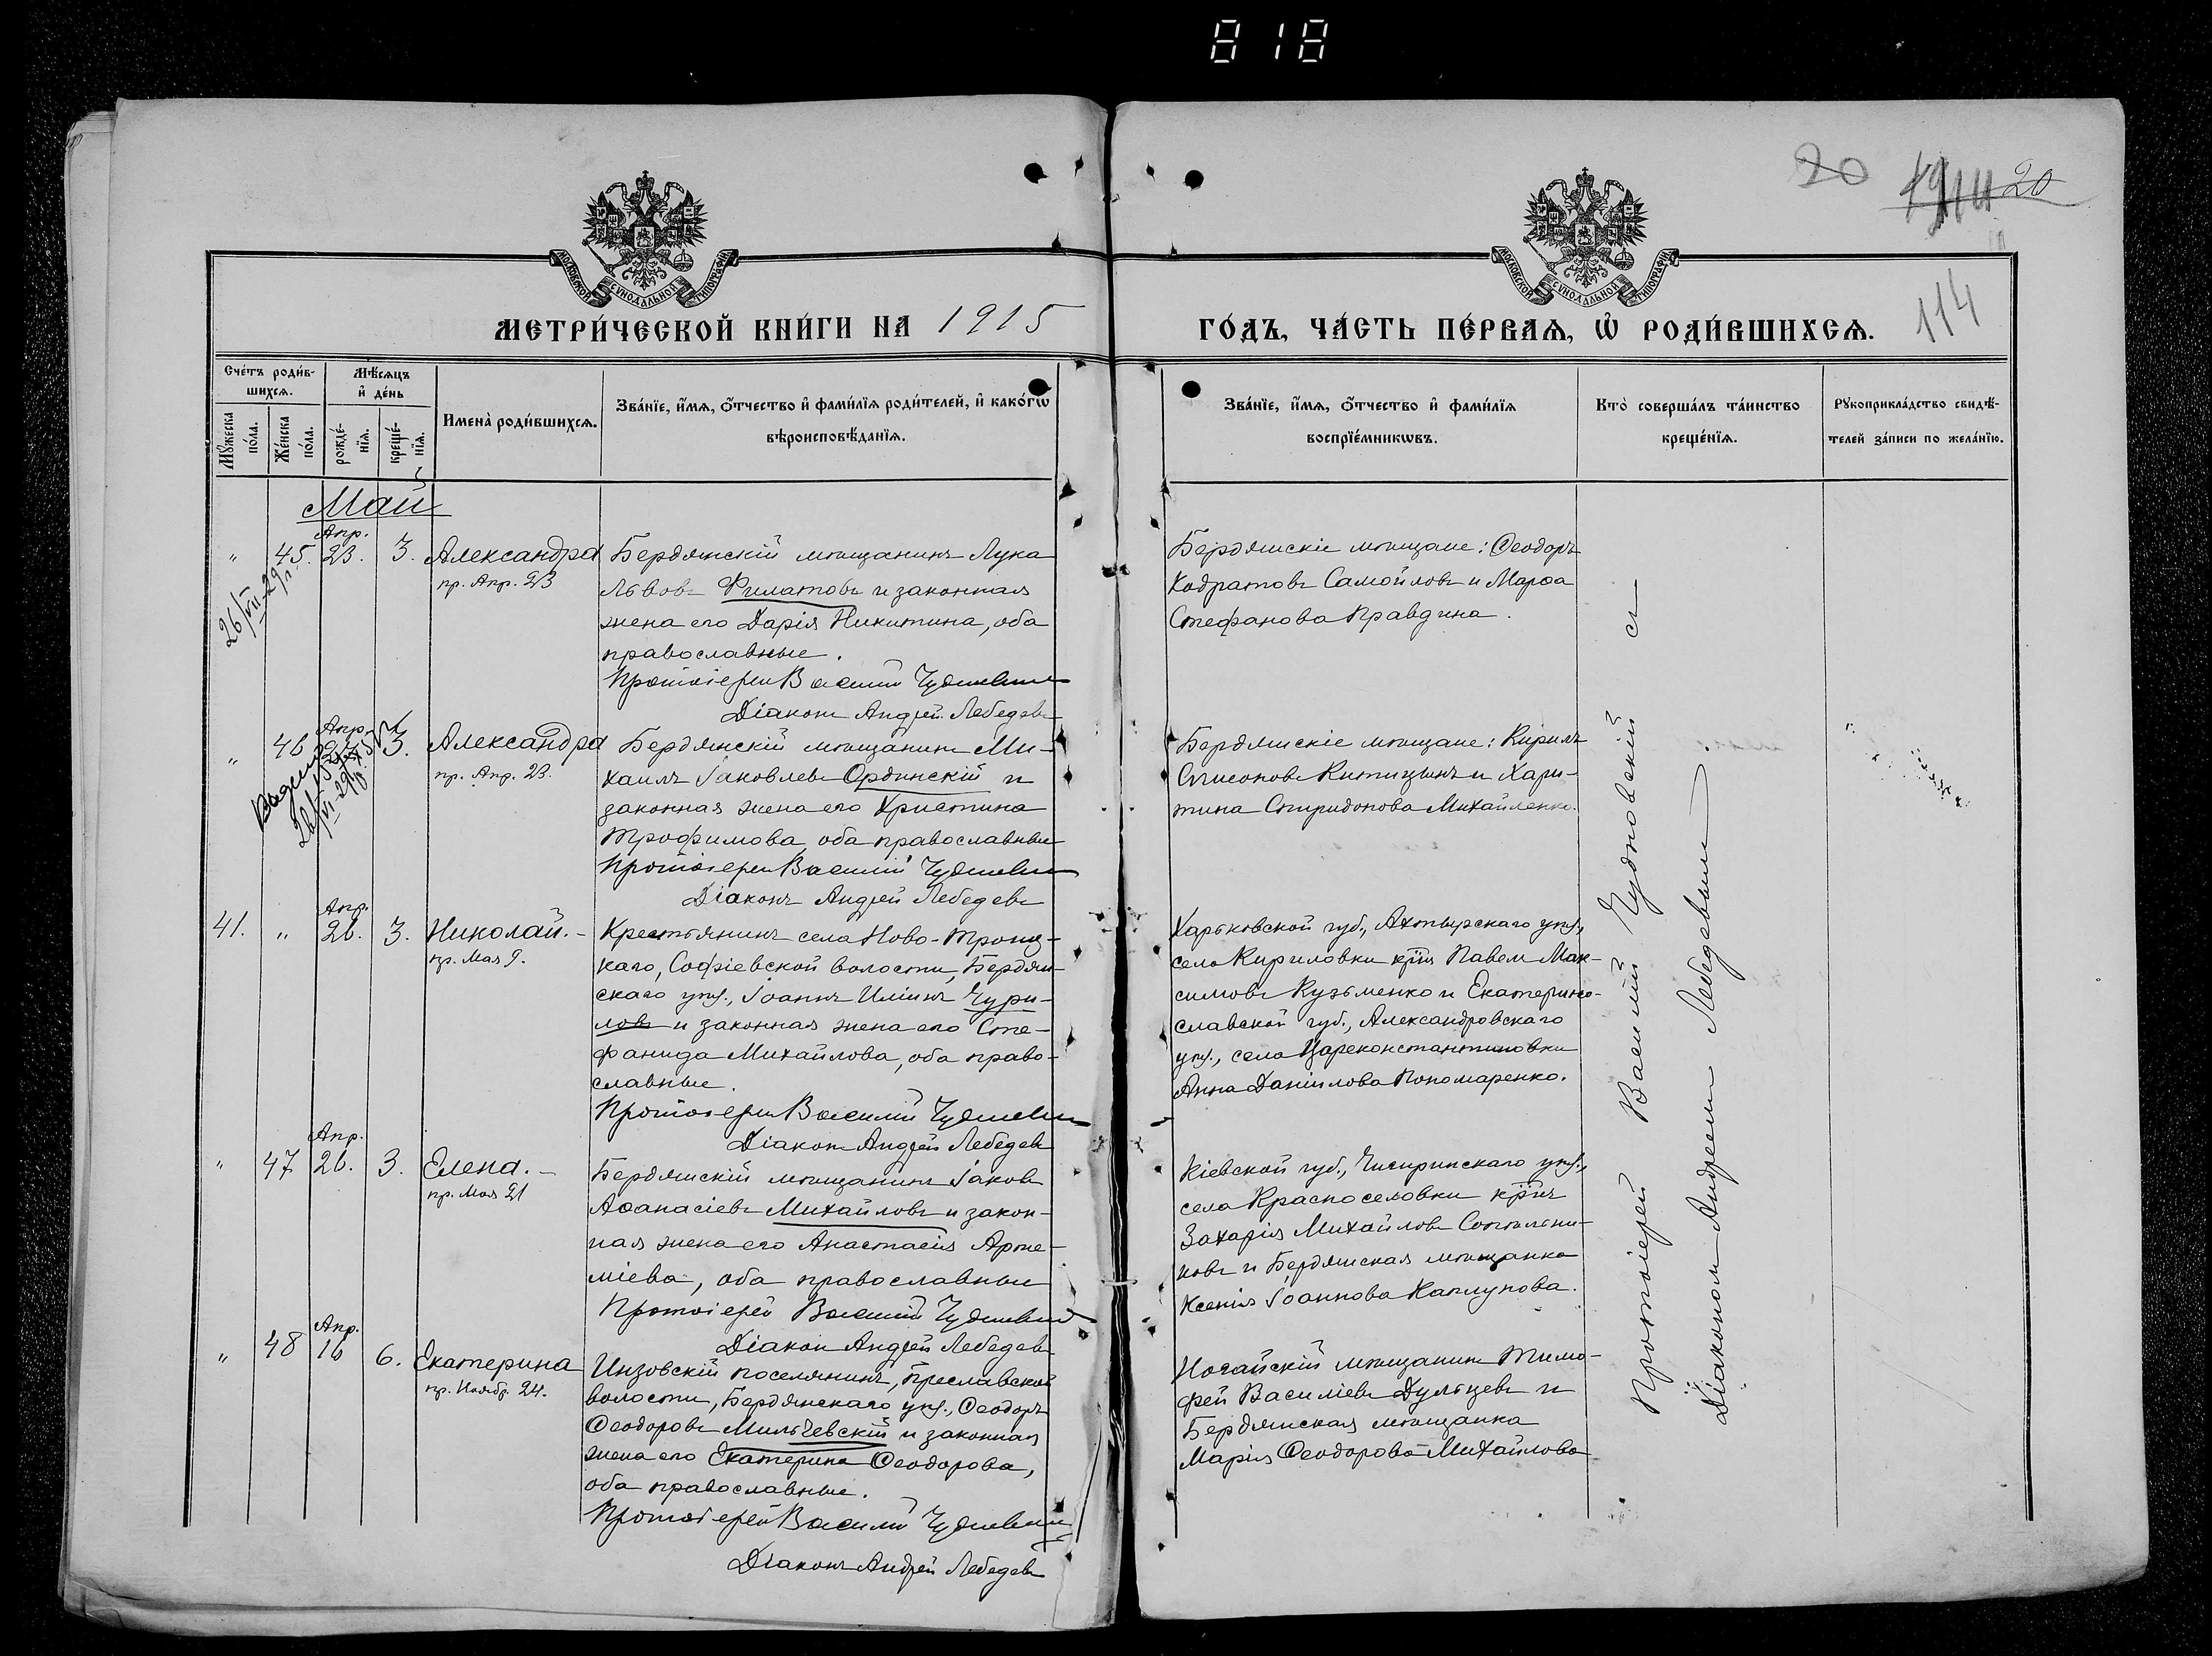 818
20
20
114
МОСКОВСКОЙ СѴНОДАЛЬНОЙ ТИПОГРАФІИ
МОСКОВСКОЙ СѴНОДАЛЬНОЙ ТИПОГРАФІИ
МЕТРИ́ЧЕСКОЙ КНИ́ГИ НА 1915
ГО́ДЪ, ЧА́СТЬ ПЕ́РВАѦ, Ѡ҆ РОДИ́ВШИХСѦ.
Сче́тъ роди́в-
шихсѧ.
Мꙋ́жеска по́ла.
Же́нска по́ла.
Мѣ́сѧцъ
и҆ де́нь
рожде́-
нїѧ.
креще́-
нїѧ.
Имена̀ роди́вшихсѧ.
Зва́нїе, и҆́мѧ, ѻ҆́тчество и҆ фами́лїѧ роди́телей, и҆ како́гѡ
вѣроисповѣ́данїѧ.
Зва́нїе, и҆́мѧ, ѻ҆́тчество и҆ фами́лїѧ
воспрїе́мникѡвъ.
Кто̀ соверша́лъ та́инство
креще́нїѧ.
Рꙋкоприкла́дство свидѣ́-
телей за́писи по жела́нїю.
Май
" 45. Апр. 23. 3. Александра
пр. Апр. 23
26/VII-29 г.
Бердянскій мѣщанинъ Лука
Львовъ Филатовъ и законная
жена его Дарія Никитина, оба
православные.
Протоіерей Василій Чудновскій
Діаконъ Андрей Лебедевъ
Бердянскіе мѣщане: Ѳеодоръ
Кодратовъ Самойловъ и Марѳа
Стефанова Правдина.
" 46 Апр. 3. Александра
пр. Апр. 23.
Бердянскій мѣщанинъ Ми-
хаилъ Іаковлевъ Ординскій и
законная жена его Христина
Трофимова, оба православные
Протоіерей Василій Чудновскій
Діаконъ Андрей Лебедевъ
Бердянскіе мѣщане: Кирилъ
Китицынъ и Хари-
тина Спиридонова Михайленко.
41. " Апр. 26. 3. Николай.-
пр. Мая 9.
Крестьянинъ села Ново-Троиц-
каго, Софіевской волости, Бердян-
скаго уѣз., Іоаннъ Иліинъ Чури-
ловъ и законная жена его Сте-
фанида Михайлова, оба право-
славные.
Протоіерей Василій Чудновскій
Діаконъ Андрей Лебедевъ
Харьковской губ., Ахтырскаго уѣз.,
села Кириловки кр̃нъ Павелъ Мак-
симовъ Кузьменко и Екатерино-
славской губ., Александровскаго
уѣз., села Цареконстантиновки
Анна Даніилова Пономаренко.
" 47 Апр. 26. 3. Елена.-
пр. Мая 21
Бердянскій мѣщанинъ Іаковъ
Аѳанасіевъ Михайловъ и закон-
ная жена его Анастасія Арте-
міева, оба православные
Протоіерей Василій Чудновскій
Діаконъ Андрей Лебедевъ
Кіевской губ., Чигиринскаго уѣз.,
села Красноселовки кр̃нъ
Захарія Михайловъ Сотъльни-
ковъ и Бердянская мѣщанка
Ксенія Іоаннова Каплунова.
" 48 Апр. 16 6. Екатерина
пр. Ноябр. 24.
Инзовскій поселянинъ, Преславской
волости, Бердянскаго уѣз., Ѳеодоръ
Ѳеодоровъ Мильчевскій и законная
жена его Екатерина Ѳеодорова,
оба православные.
Протоіерей Василій Чудновскій
Діаконъ Андрей Лебедевъ
Ногайскій мѣщанинъ Тимо-
фей Василіевъ Дульцевъ и
Бердянская мѣщанка
Марія Ѳеодорова Михайлова
Протоіерей Василій Чудновскій съ
Діакономъ Андреемъ Лебедевымъ.